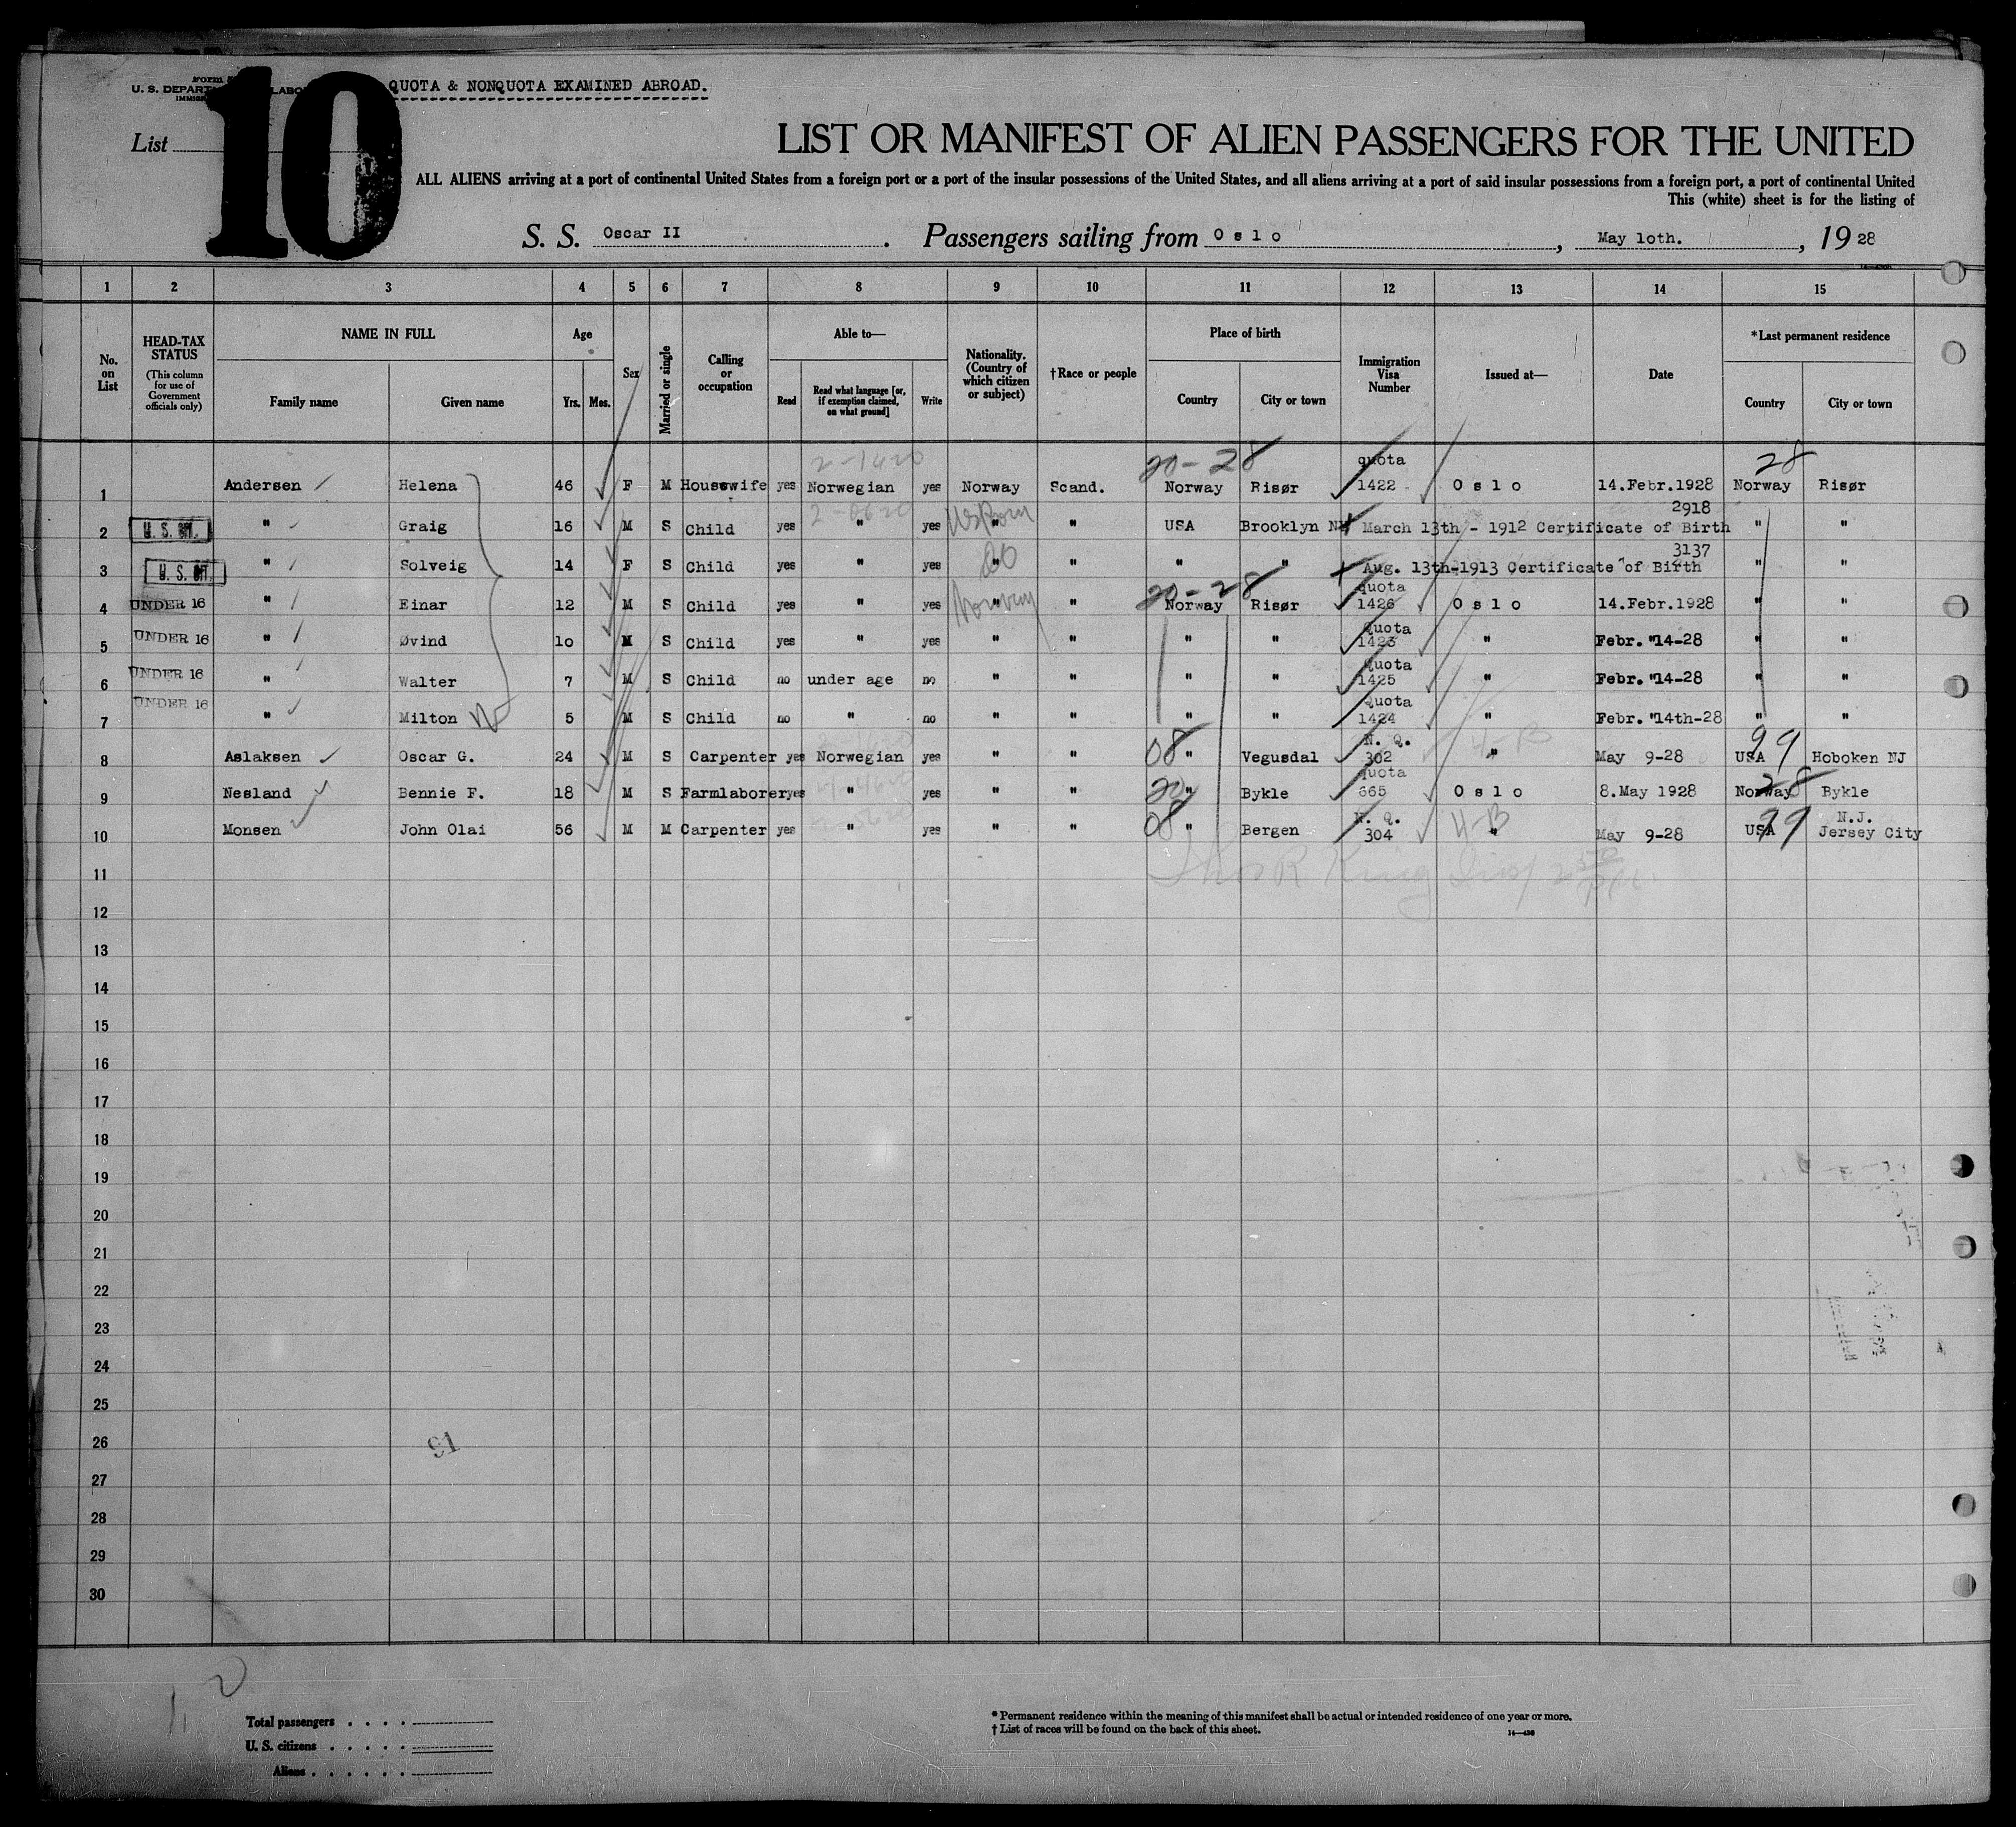 QUOTA & NONQUOTA EXAMINED ABROAD.
U. S. DEPARTMENT LABOR
List
10
LIST OR MANIFEST OF ALIEN PASSENGERS FOR THE UNITED
ALL ALIENS arriving at a port of continental United States from a foreign port or a port of the insular possessions of the United States, and all aliens arriving at a port of said insular possessions from a foreign port, a port of continental United
This (white) sheet is for the listing of
S. S. Oscar II. Passengers sailing from O s l o, May loth., 19 28
1 2 3 4 5 6 7 8 9 10 11 12 13 14 15
No. on List
HEAD-TAX STATUS (This column for use of Government officials only)
NAME IN FULL Family name Given name
Age Yrs. Mos.
Sex
Married or single
Calling or occupation
Able to— Read Read what language [or, if exemption claimed, on what ground] Write
Nationality. (Country of which citizen or subject)
†Race or people
Place of birth Country City or town
Immigration Visa Number
Issued at—
Date
*Last permanent residence Country City or town
2-1420 20-28 quota 28
1 Andersen Helena 46 F M Housewife yes Norwegian yes Norway Scand. Norway Risør 1422 O s l o 14.Febr.1928 Norway Risør
2918
2 U. S. CIT. " Graig 16 M S Child yes " yes " US Born " USA Brooklyn NY March 13th - 1912 Certificate of Birth " "
3137
3 U. S. CIT. " Solveig 14 F S Child yes " yes " do " " " Aug. 13th-1913 Certificate of Birth " "
20-28 quota
4 UNDER 16 " Einar 12 M S Child yes " yes " Norway " Norway Risør 1426 O s l o 14.Febr.1928 " "
Quota
5 UNDER 16 " Øvind 10 M S Child yes " yes " " " " 1423 " Febr. "14-28 " "
Quota
6 UNDER 16 " Walter 7 M S Child no under age no " " " " 1425 " Febr. "14-28 " "
Quota
7 UNDER 16 " Milton 5 M S Child no " no " " " " 1424 " Febr. "14th-28 " "
N. Q. 4-B 99
8 Aslaksen Oscar G. 24 M S Carpenter yes Norwegian yes " " 08 " Vegusdal 302 " May 9-28 USA Hoboken NJ
quota
9 Nesland Bennie F. 18 M S Farmlaborer yes " yes " " 20 " Bykle 665 O s l o 8.May 1928 Norway 28 Bykle
N. Q. 4-B N.J.
10 Monsen John Olai 56 M M Carpenter yes " yes " " 08 " Bergen 304 " May 9-28 USA 99 Jersey City
11
12
13
14
15
16
17
18
19
20
21
22
23
24
25
26
91
27
28
29
30
Total passengers
U. S. citizens
Aliens
* Permanent residence within the meaning of this manifest shall be actual or intended residence of one year or more.
† List of races will be found on the back of this sheet.